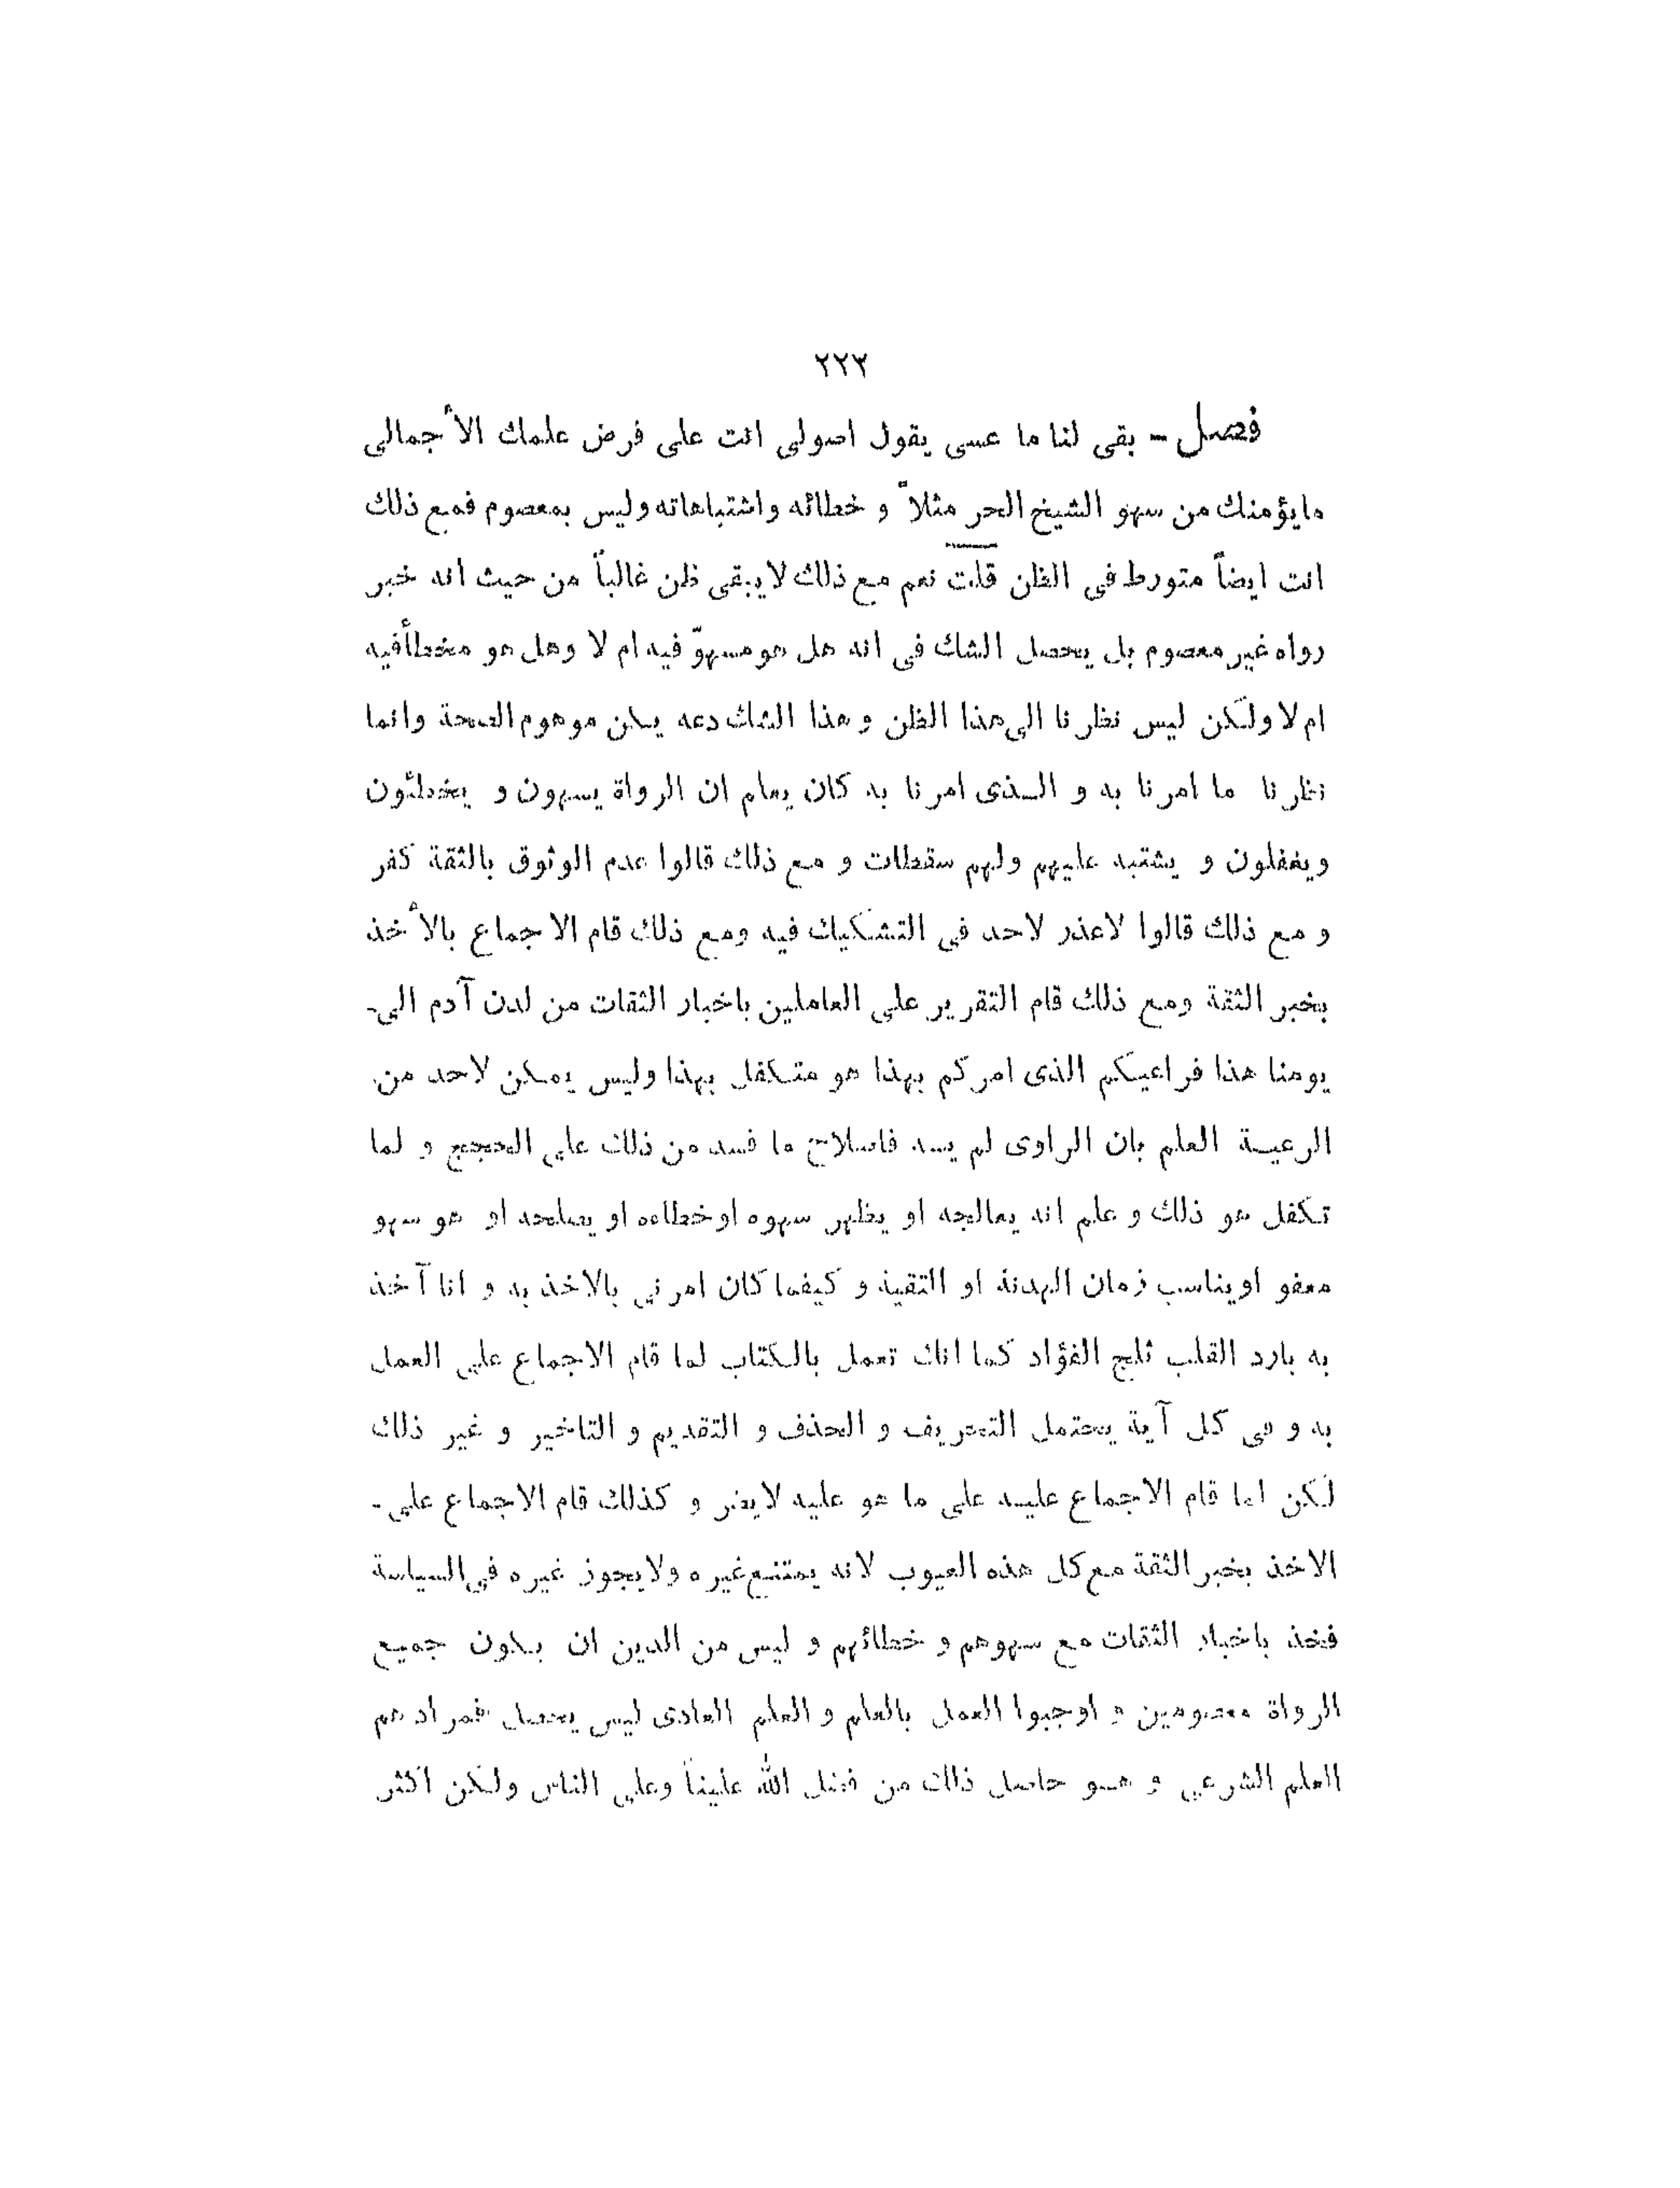 ٢٢٣
فصل - بقى لنا ما عسى يقول اصولى انت على فرض علمك الأجمالي
مايؤمنك من سهو الشيخ الحر مثلاً و خطائه واشتباهاته وليس بمعصوم فمع ذلك
انت ايضاً متورط فى الظن قلت نعم مع ذلك لا يبقى ظن غالباً من حيث انه خبر
رواه غير معصوم بل يحصل الشك فى انه هل هو مسهوّ فيه ام لا وهل هو مخطأ فيه
ام لا ولكن ليس نظرنا الى هذا الظن و هذا الشك دعه يكن موهوم الصحة وانما
نظرنا ما امرنا به و الذى امرنا به كان يعلم ان الرواة يسهون و يخطئون
ويغفلون و يشتبه عليهم ولهم سقطات و مع ذلك قالوا عدم الوثوق بالثقة كفر
و مع ذلك قالوا لاعذر لاحد في التشكيك فيه ومع ذلك قام الاجماع بالأخذ
بخبر الثقة ومع ذلك قام التقرير على العاملين باخبار الثقات من لدن آدم الى-
يومنا هذا فراعيكم الذى امركم بهذا هو متكفل بهذا وليس يمكن لاحد من
الرعية العلم بان الراوى لم يسه فاصلاح ما فسد من ذلك على الحجج و لما
تكفل هو ذلك و علم انه يعالجه او يظهر سهوه او خطاءه او يصلحه او هو سهو
معفو او يناسب زمان الهدنة او التقية و كيفما كان امرني بالاخذ به و انا آخذ
به بارد القلب ثلج الفؤاد كما انك تعمل بالكتاب لما قام الاجماع على العمل
به و فى كل آية يحتمل التحريف و الحذف و التقديم و التاخير و غير ذلك
لكن لما قام الاجماع عليه على ما هو عليه لايضر و كذلك قام الاجماع على-
الاخذ بخبر الثقة مع كل هذه العيوب لانه يمتنع غيره ولايجوز غيره في السياسة
فخذ باخبار الثقات مع سهوهم و خطائهم و ليس من الدين ان يكون جميع
الرواة معصومين و اوجبوا العمل بالعلم و العلم العادى ليس يحصل فمرادهم
العلم الشرعي و هو حاصل ذلك من فضل الله علينا وعلى الناس ولكن اكثر